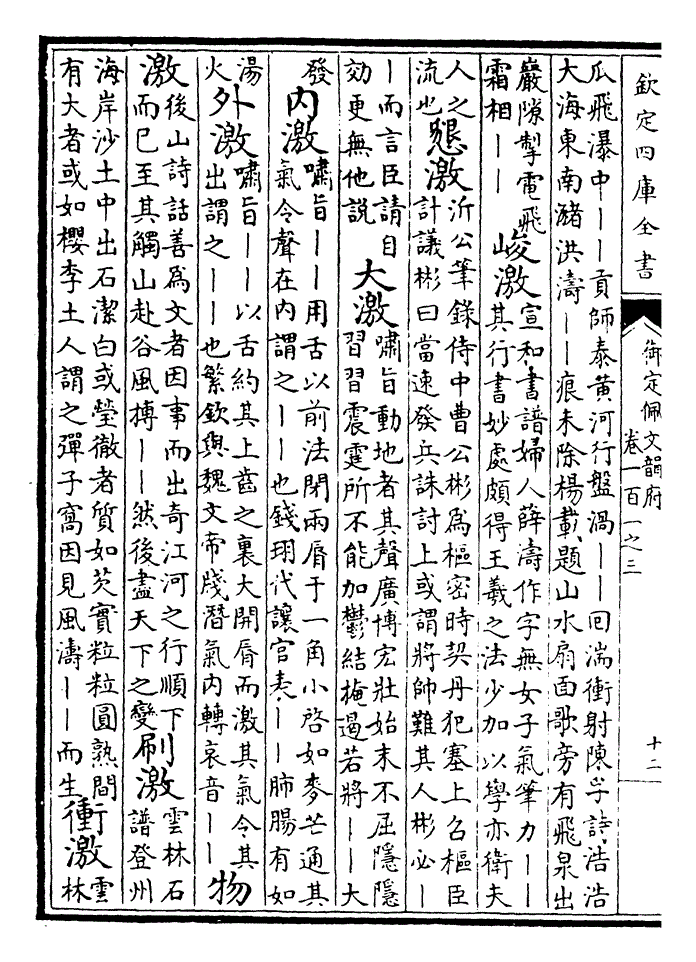 欽定四庫全書
御定佩文韻府
卷一百一之三
十二
瓜飛瀑中——貢師泰黃河行盤渦——回湍衝射陳孚詩浩浩
大海東南瀦洪濤——痕未除楊載題山水扇面歌旁有飛泉出
巖隙掣電飛
霜相——
峻激
宣和書譜婦人薛濤作字無女子氣筆力——
其行書妙處頗得王羲之法少加以學亦衛夫
人之
流也
懇激
沂公筆錄侍中曹公彬爲樞密時契丹犯塞上召樞臣
計議彬曰當速發兵誅討上或謂將帥難其人彬必—
—而言臣請自
効更無他說
大激
嘯旨動地者其聲廣博宏壯始末不屈隱隱
習習震霆所不能加鬱結掩遏若將——大
發
內激
嘯旨——用舌以前法閉兩脣于一角小啓如麥芒通其
氣令聲在內謂之——也錢珝代讓官表——肺腸有如
湯
火
外激
嘯旨——以舌約其上齒之裏大開脣而激其氣令其
出謂之——也繁欽與魏文帝牋潛氣內轉哀音——
物
激
後山詩話善爲文者因事而出奇江河之行順下
而已至其觸山赴谷風搏——然後盡天下之變
刷激
雲林石
譜登州
海岸沙土中出石潔白或瑩徹者質如芡實粒粒圓熟間
有大者或如櫻李土人謂之彈子窩因見風濤——而生
衝激
雲
林